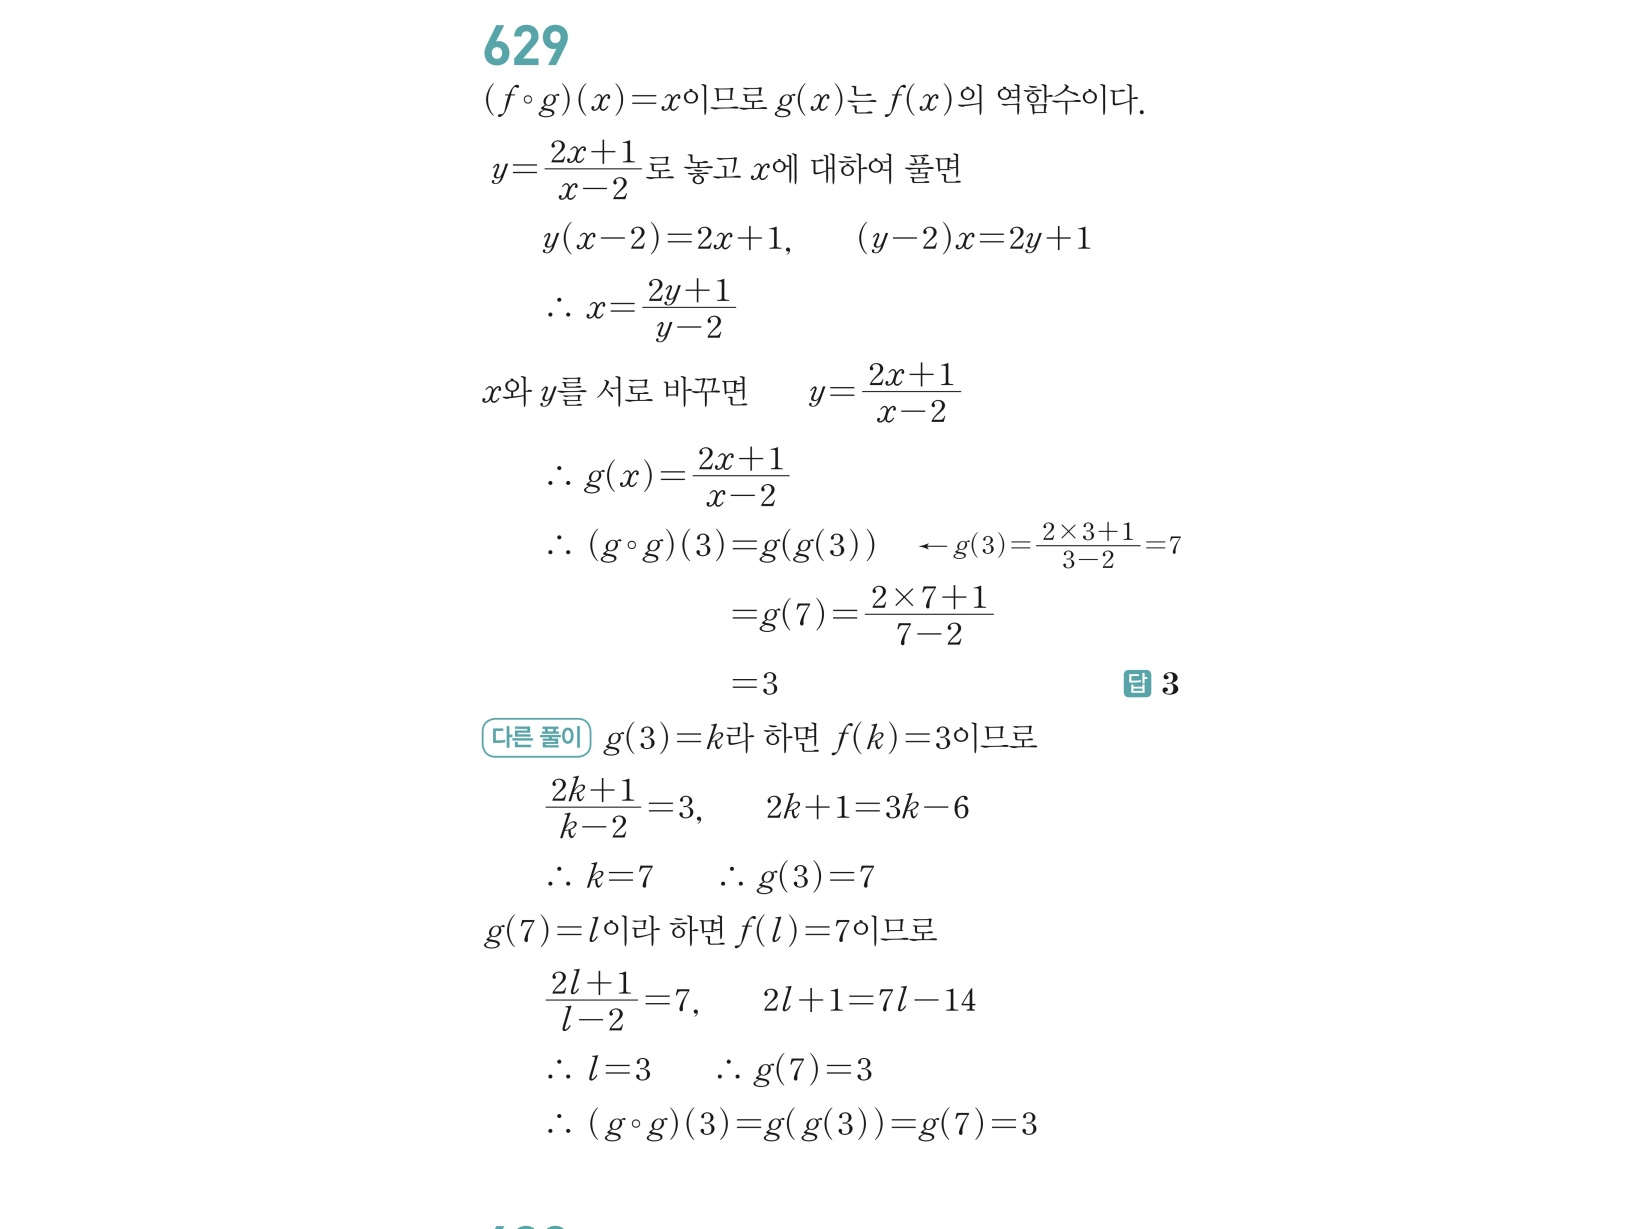 629
(f∘g)(x)=x이므로 g(x)는 f(x)의 역함수이다.
y=\frac{2x+1}{x-2}로 놓고 x에 대하여 풀면
y(x-2)=2x+1, (y-2)x=2y+1
∴ x=\frac{2y+1}{y-2}
x와 y를 서로 바꾸면 y=\frac{2x+1}{x-2}
∴ g(x)=\frac{2x+1}{x-2}
∴ (g∘g)(3)=g(g(3)) ← g(3)=\frac{2×3+1}{3-2}=7
=g(7)=\frac{2×7+1}{7-2}
=3 답 3
다른 풀이 g(3)=k라 하면 f(k)=3이므로
\frac{2k+1}{k-2}=3, 2k+1=3k-6
∴ k=7 ∴ g(3)=7
g(7)=l이라 하면 f(l)=7이므로
\frac{2l+1}{l-2}=7, 2l+1=7l-14
∴ l=3 ∴ g(7)=3
∴ (g∘g)(3)=g(g(3))=g(7)=3